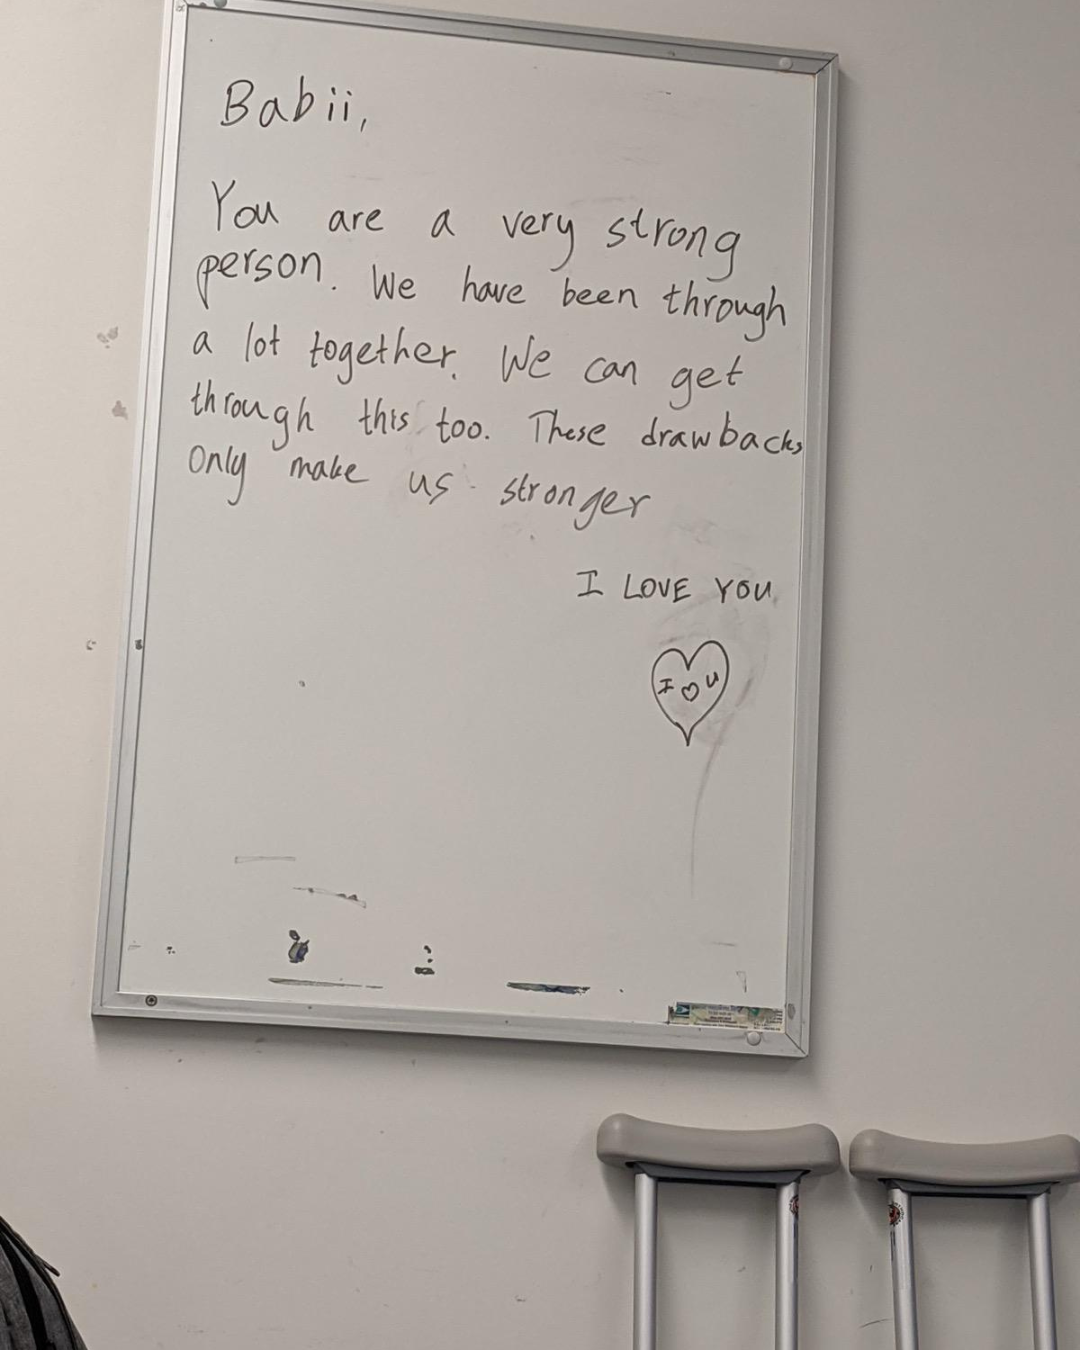 Babii,
You are a very strong
person. We have been through
a lot together. We can get
through this too. These drawbacks
only make us stronger
I LOVE YOU
I ♡ U